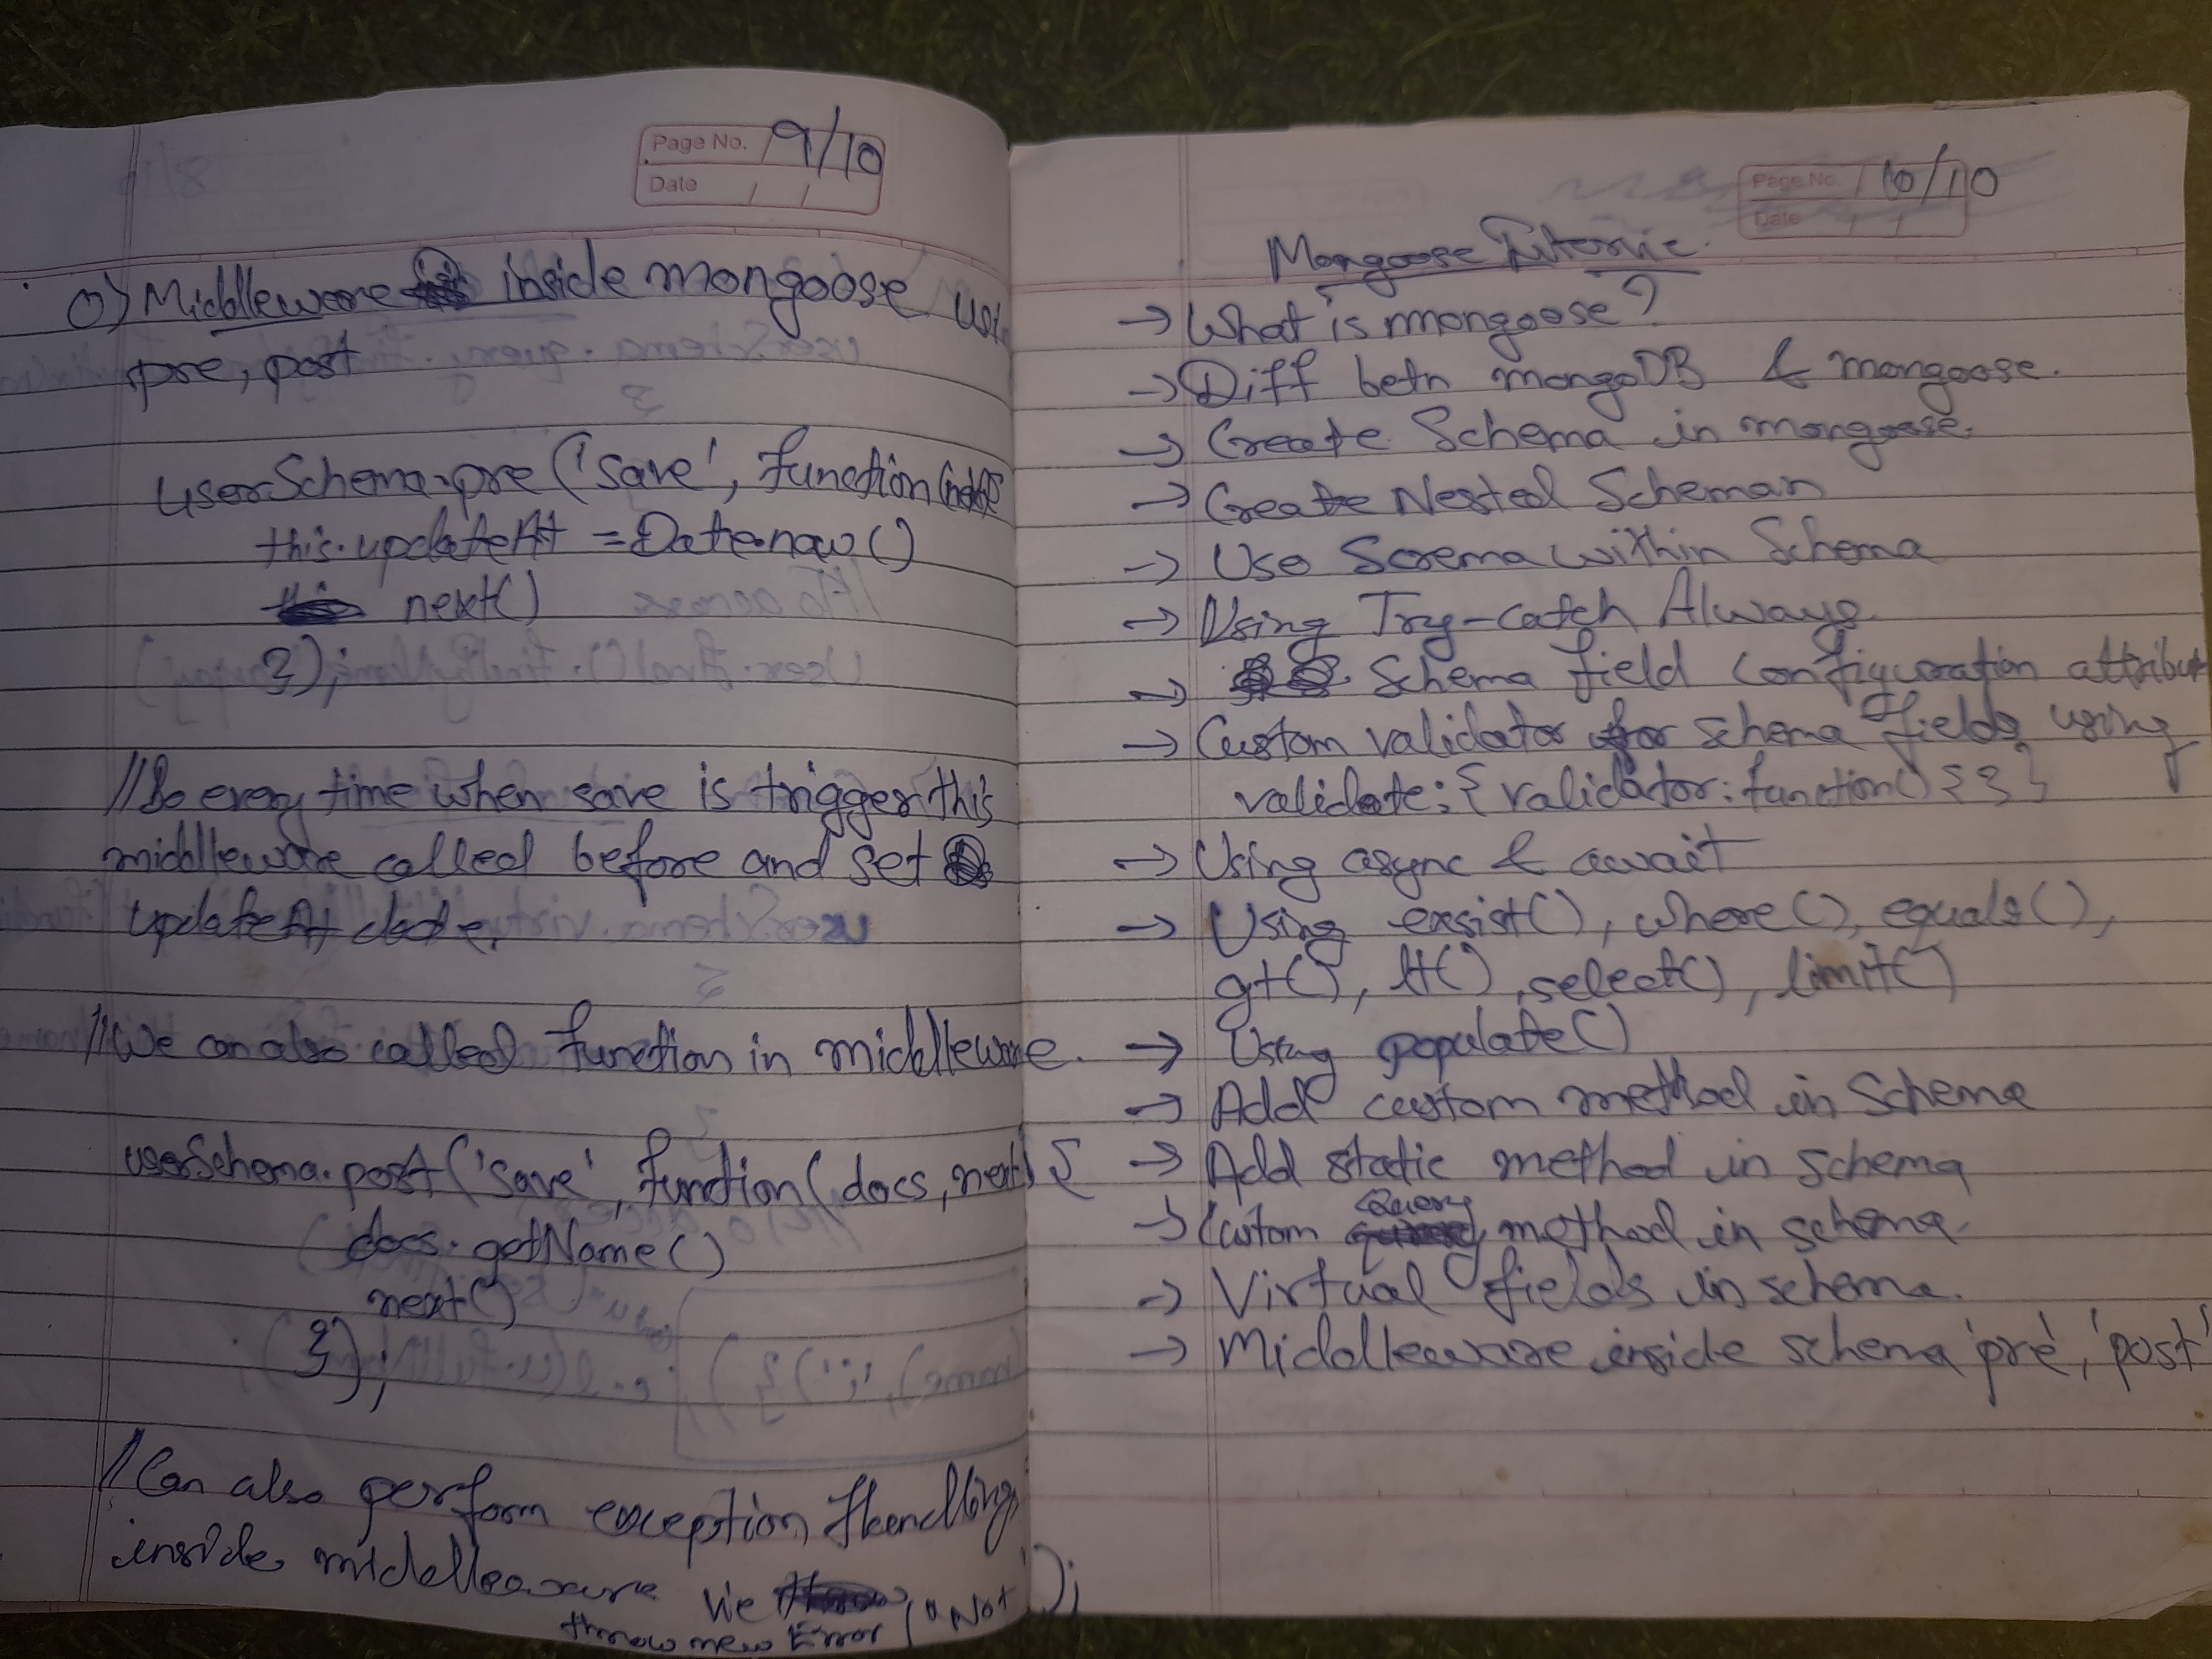 Page No. 9/10
Date / /
o) Middleware inside mongoose
pre, post
userSchema.pre ('save', function(
this.updateAt = Date.now()
next()
});
//So every time when save is trigger this
middleware called before and set
updateAt date.
//We can also called function in middleware.
userSchema.post('save', function(docs, next) {
docs.getName()
next()
});
//Can also perform exception Handling
inside middleware
throw new Error ("Not ");
Page No. 10/10
Date / /
Mongoose
→ What is mongoose?
→ Diff betn mongoDB & mongoose.
→ Create Schema in mongoose.
→ Create Nested Scheman
→ Use Screma within Schema
→ Using Try-catch Always.
→ Schema field configuration attribut
→ Custom validator for schema fields using
validate: { validator: function() { } }
→ Using async & await
→ Using exsist(), where(), equals(),
gt(), lt(), select(), limit()
→ Using populate()
→ Add custom method in Schema
→ Add static method in schema
→ Custom Query method in schema.
→ Virtual fields in schema.
→ Middleware inside schema 'pre', 'post'